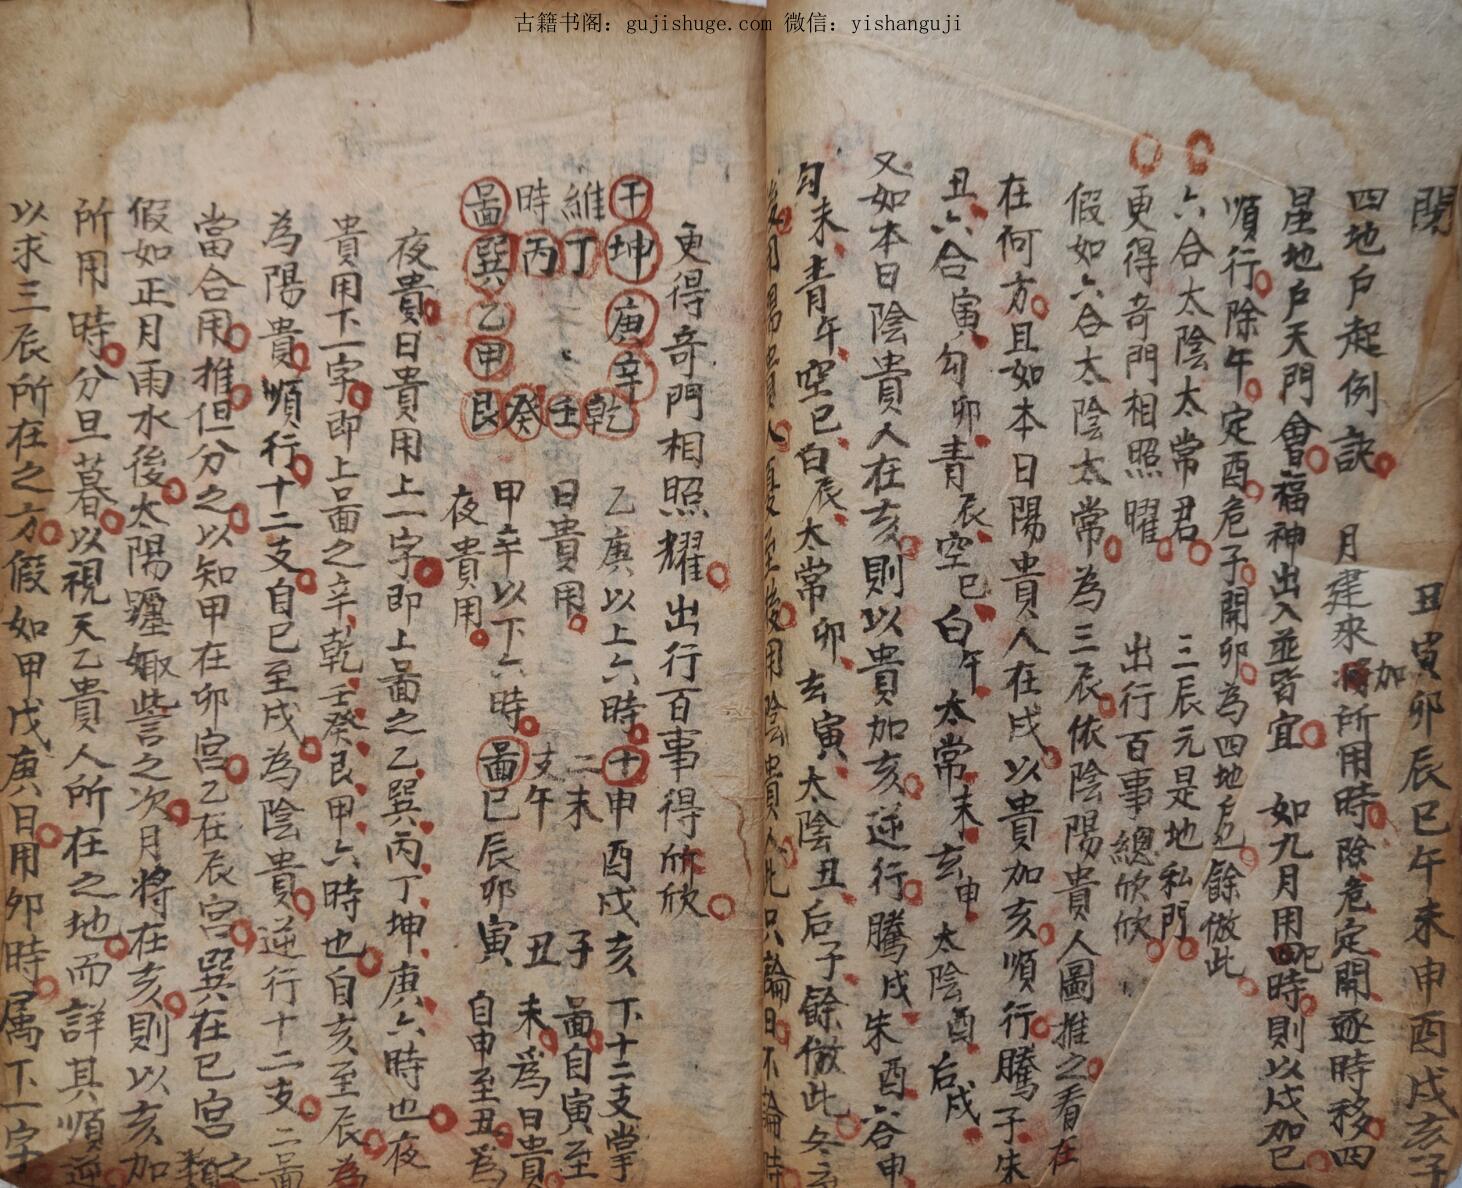 古籍书阁：gujishuge.com 微信：yishanguji
閉 丑寅卯辰巳午未申酉戌亥子
四地户起例訣 月建來加將所用時除危定開逐時移四
星地户天門會福神出入並皆宜 如九月用四時則以戌加巳
順行除午定酉危子開卯為四地户餘倣此
六合太陰太常君 三辰元是地私門
更得奇門相照曜 出行百事總欣欣
假如六合太陰太常為三辰依陰陽貴人圖推之看在
在何方且如本日陽貴人在戌以貴加亥順行騰子朱
丑六合寅勾卯青辰空巳白午太常未玄申太陰酉后戌
又如本日陰貴人在亥則以貴加亥逆行騰戌朱酉六合申
勾未青午空巳白辰太常卯玄寅太陰丑后子餘倣此冬
更得奇門相照耀出行百事得欣欣
干坤庚辛乾 乙庚以上六時 十申酉戌亥 下十二支掌
維丁壬 日貴用 二未子 圖自寅至
時丙癸 甲辛以下六時 支午丑 未為日貴
圖巽乙甲艮 夜貴用 圖巳辰卯寅 自申至丑為
夜貴日貴用上一字即上畐之乙巽丙丁坤庚六時也夜
貴用下一字即上畐之辛乾壬癸艮甲六時也自亥至辰為
為陽貴順行十二支自巳至戌為陰貴逆行十二支二畐
當合用推但分之以知甲在卯宮乙在辰宮巽在巳宮之類
假如正月雨水後太陽躔娵訾之次月將在亥則以亥加
所用時分旦暮以視天乙貴人所在之地而詳其順逆
以求三辰所在之方假如甲戊庚日用卯時屬下一字